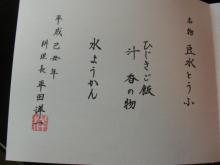 名物 豆水とうふ
ひじきご飯
汁 香の物
水ようかん
平成己丑年
料理長 平田洋一